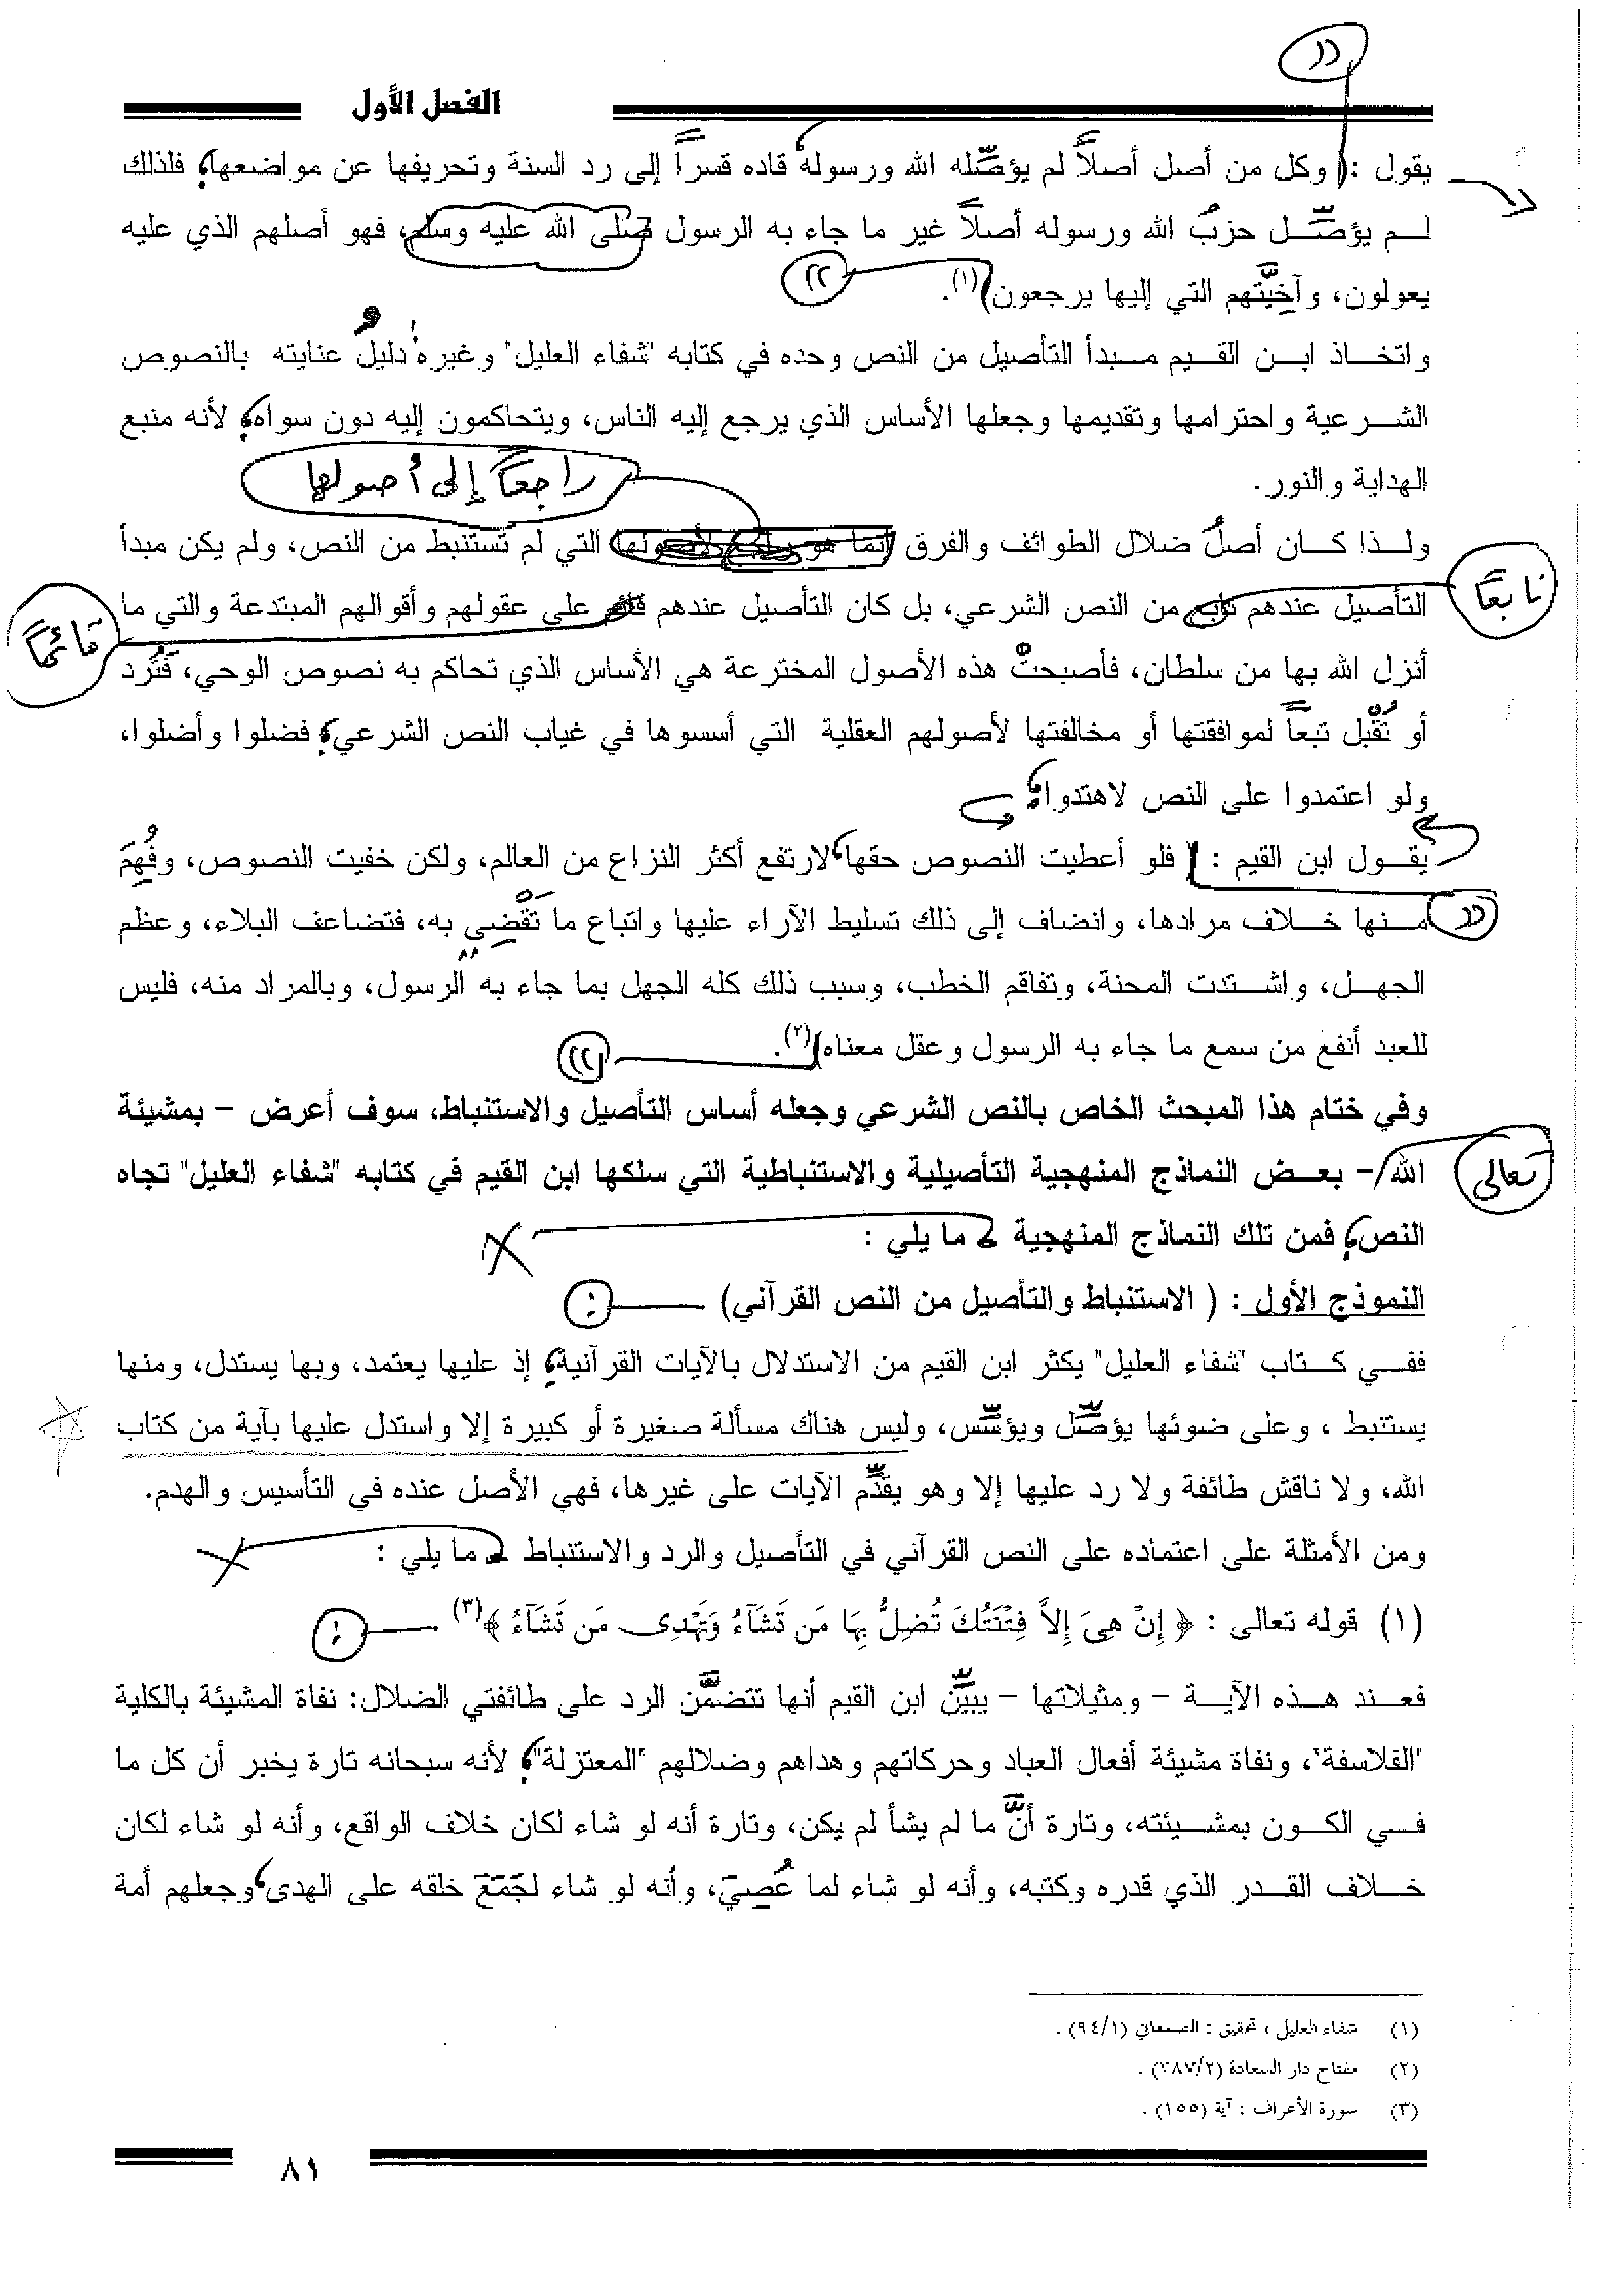 الفصل الأول
يقول : ( وكل من أصل أصلاً لم يؤصّله الله ورسوله قاده قسراً إلى رد السنة وتحريفها عن مواضعها، فلذلك
لم يؤصّل حزبُ الله ورسوله أصلاً غير ما جاء به الرسول صلى الله عليه وسلم، فهو أصلهم الذي عليه
يعولون، وآخِيَّتهم التي إليها يرجعون)(١).
واتخاذ ابن القيم مبدأ التأصيل من النص وحده في كتابه "شفاء العليل" وغيره؛ دليلُ عنايته بالنصوص
الشرعية واحترامها وتقديمها وجعلها الأساس الذي يرجع إليه الناس، ويتحاكمون إليه دون سواه؛ لأنه منبع
الهداية والنور.
راجعاً إلى أصولها
ولذا كان أصلُ ضلال الطوائف والفرق إنما هو راجع لأصولها التي لم تستنبط من النص، ولم يكن مبدأ
تابعاً
التأصيل عندهم تابع من النص الشرعي، بل كان التأصيل عندهم قائم على عقولهم وأقوالهم المبتدعة والتي ما
قائماً
أنزل الله بها من سلطان، فأصبحتْ هذه الأصول المخترعة هي الأساس الذي تحاكم به نصوص الوحي، فَتُرد
أو تُقْبل تبعاً لموافقتها أو مخالفتها لأصولهم العقلية التي أسسوها في غياب النص الشرعي؛ فضلوا وأضلوا،
ولو اعتمدوا على النص لاهتدوا؛
يقول ابن القيم : ( فلو أعطيت النصوص حقها، لارتفع أكثر النزاع من العالم، ولكن خفيت النصوص، وفُهِمَ
منها خلاف مرادها، وانضاف إلى ذلك تسليط الآراء عليها واتباع ما تَقْضِي به، فتضاعف البلاء، وعظم
الجهل، واشتدت المحنة، وتفاقم الخطب، وسبب ذلك كله الجهل بما جاء به الرسول، وبالمراد منه، فليس
للعبد أنفع من سمع ما جاء به الرسول وعقل معناه)(٢).
وفي ختام هذا المبحث الخاص بالنص الشرعي وجعله أساس التأصيل والاستنباط، سوف أعرض – بمشيئة
الله – بعض النماذج المنهجية التأصيلية والاستنباطية التي سلكها ابن القيم في كتابه "شفاء العليل" تجاه
تعالى
النص؛ فمن تلك النماذج المنهجية ما يلي :
النموذج الأول : ( الاستنباط والتأصيل من النص القرآني) :
ففي كتاب "شفاء العليل" يكثر ابن القيم من الاستدلال بالآيات القرآنية؛ إذ عليها يعتمد، وبها يستدل، ومنها
يستنبط ، وعلى ضوئها يؤصّل ويؤسّس، وليس هناك مسألة صغيرة أو كبيرة إلا واستدل عليها بآية من كتاب
الله، ولا ناقش طائفة ولا رد عليها إلا وهو يقدِّم الآيات على غيرها، فهي الأصل عنده في التأسيس والهدم.
ومن الأمثلة على اعتماده على النص القرآني في التأصيل والرد والاستنباط ما يلي :
(١) قوله تعالى : ﴿ إِنْ هِيَ إِلاَّ فِتْنَتُكَ تُضِلُّ بِهَا مَن تَشَآءُ وَتَهْدِى مَن تَشَآءُ ﴾(٣) :
فعند هذه الآية – ومثيلاتها – يبيِّن ابن القيم أنها تتضمَّن الرد على طائفتي الضلال: نفاة المشيئة بالكلية
"الفلاسفة"، ونفاة مشيئة أفعال العباد وحركاتهم وهداهم وضلالهم "المعتزلة"؛ لأنه سبحانه تارة يخبر أن كل ما
في الكون بمشيئته، وتارة أنَّ ما لم يشأ لم يكن، وتارة أنه لو شاء لكان خلاف الواقع، وأنه لو شاء لكان
خلاف القدر الذي قدره وكتبه، وأنه لو شاء لما عُصِيَ، وأنه لو شاء لجَمَعَ خلقه على الهدى، وجعلهم أمة
(١) شفاء العليل ، تحقيق : الصمعاني (٩٤/١) .
(٢) مفتاح دار السعادة (٣٨٧/٢) .
(٣) سورة الأعراف : آية (١٥٥) .
٨١